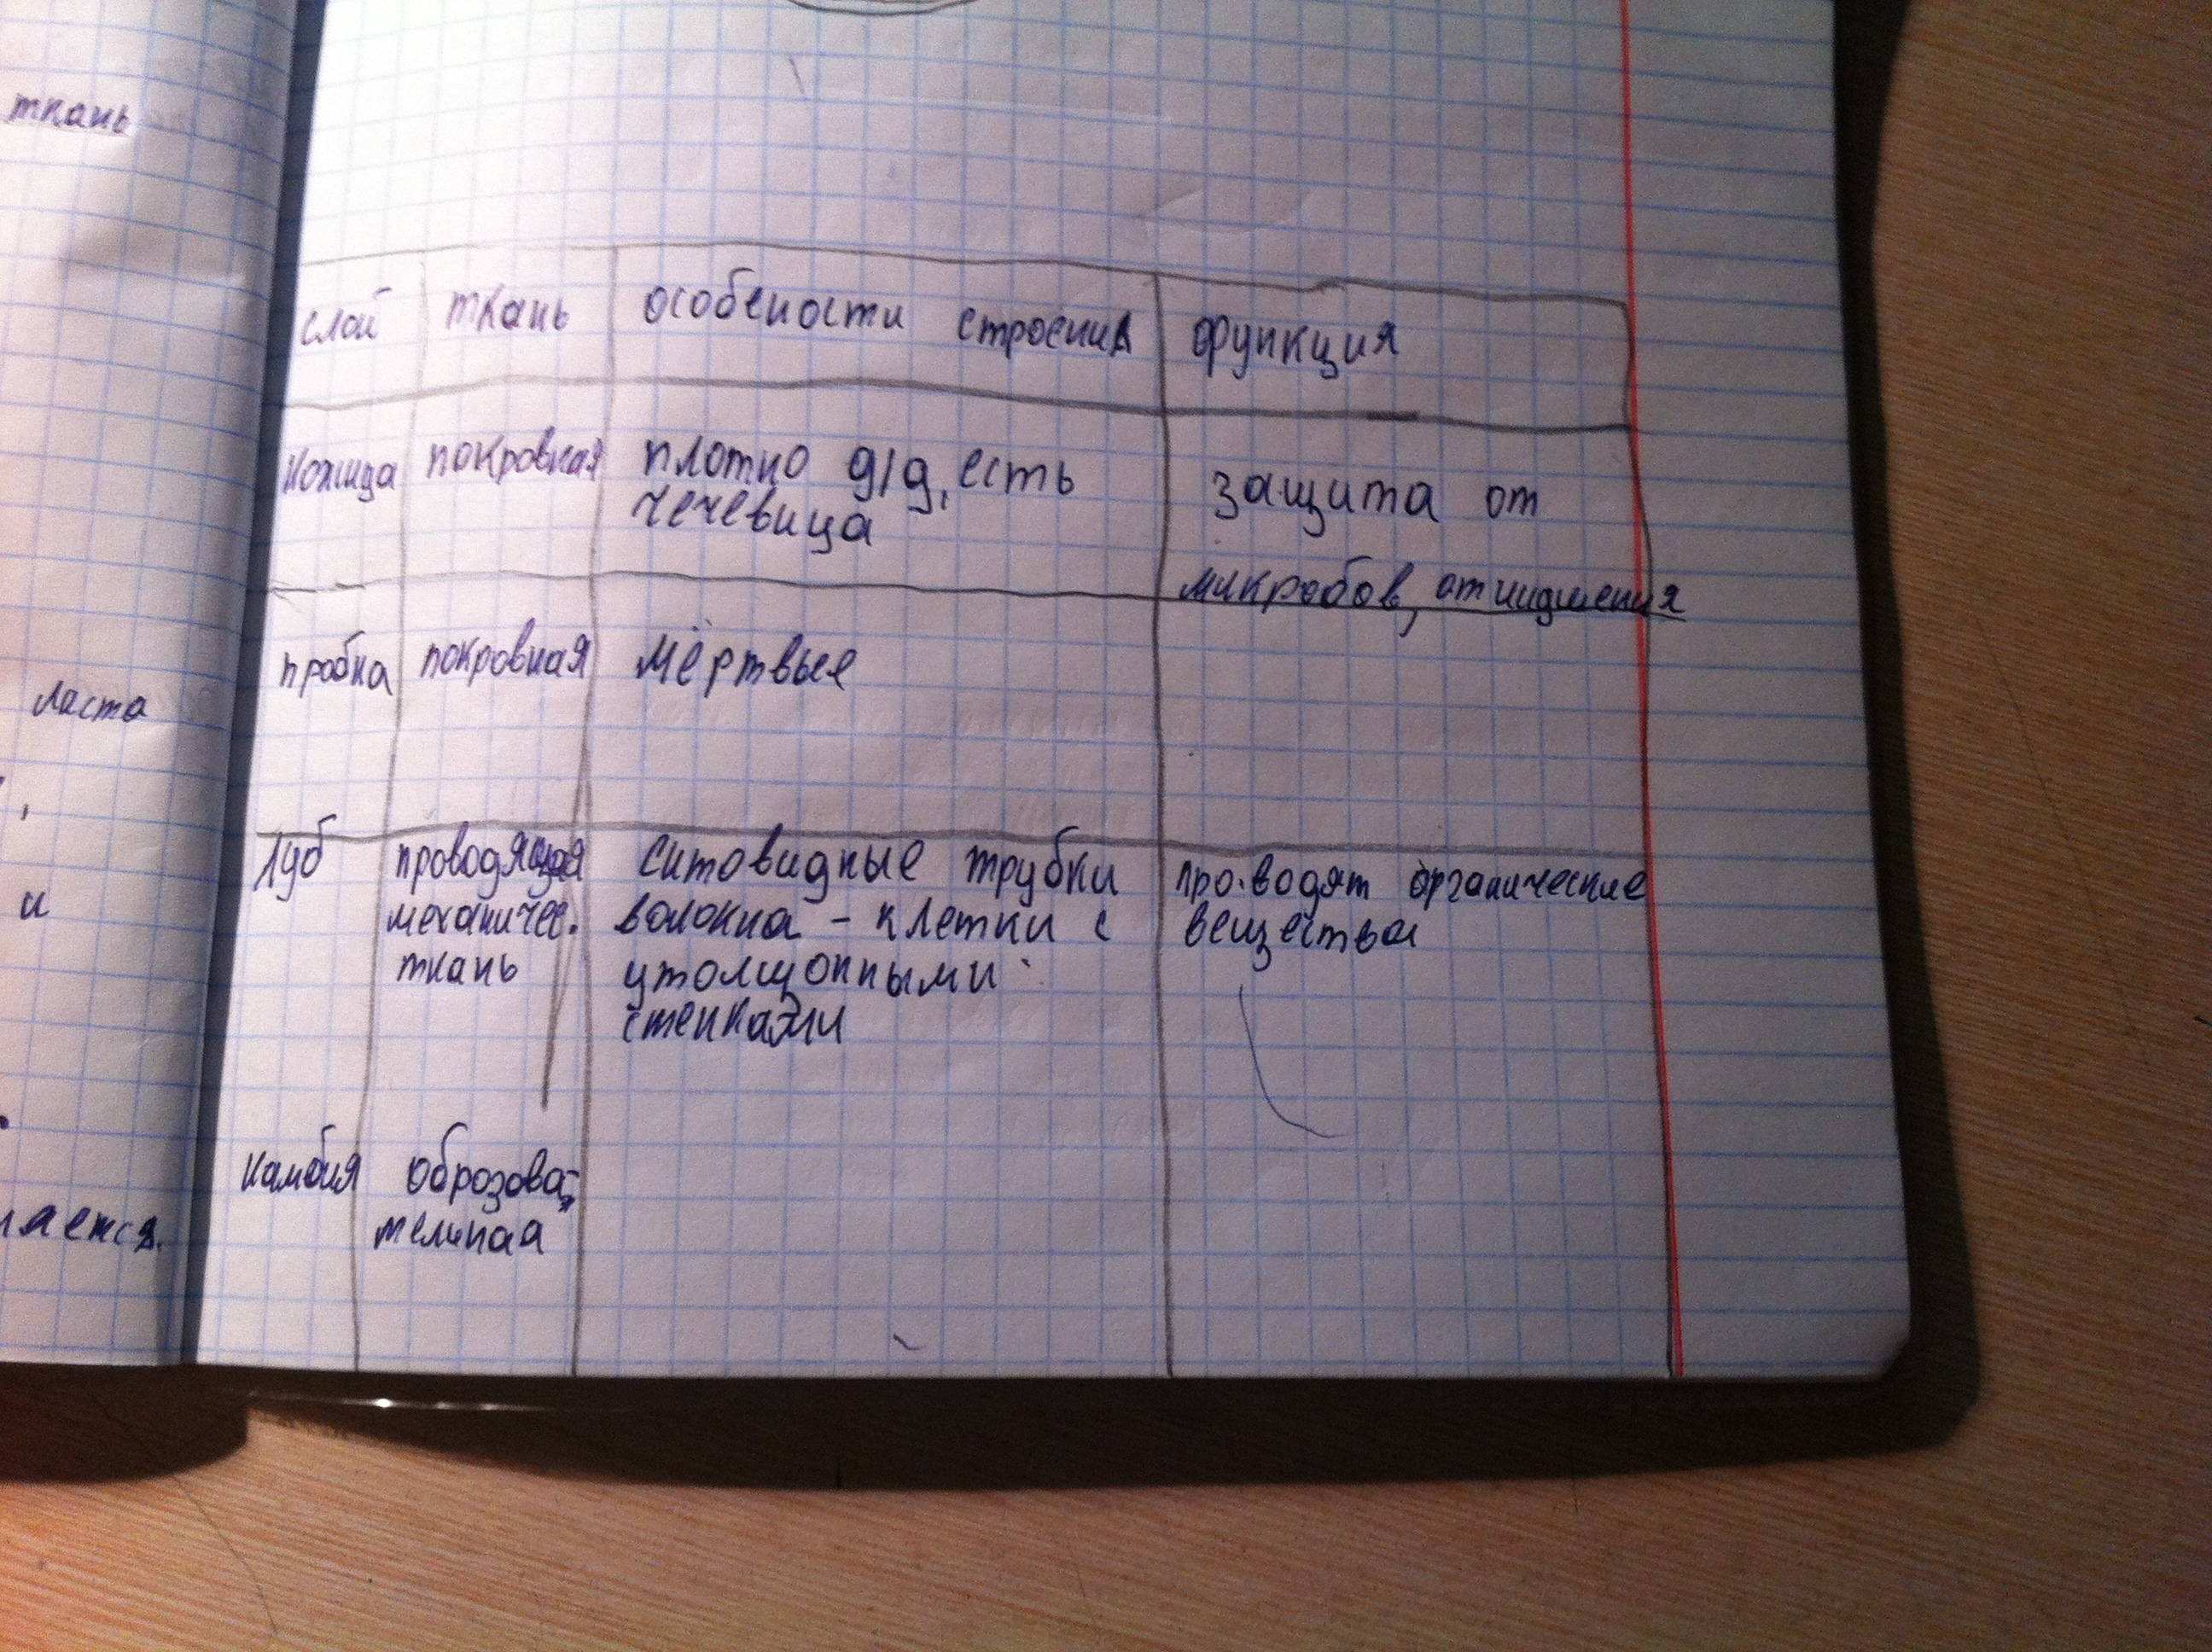 ткань
ласта
,
и
.
ляется.
слой ткань особености строения функция
кожица покровная плотно д/д, есть защита от
чечевица
микробов, от
пробка покровная мёртвые
луб проводящая ситовидные трубки проводят органические
механичес. волокна - клетки с вещества
ткань утолщонными
стенками
камбия оброзова-
тельная